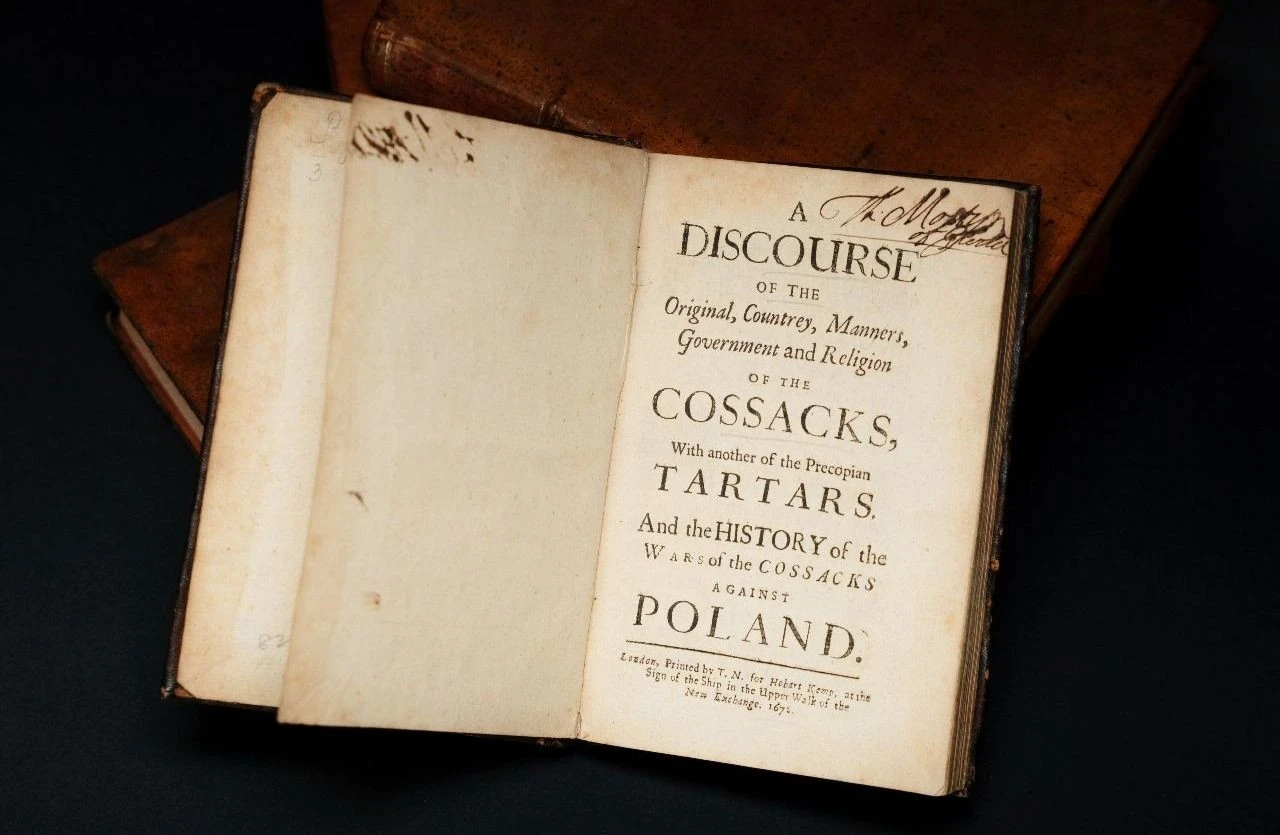 A
Th: Mostyn
DISCOURSE
OF THE
Original, Countrey, Manners,
Government and Religion
OF THE
COSSACKS,
With another of the Precopian
TARTARS.
And the HISTORY of the
WARS of the COSSACKS
AGAINST
POLAND.
London, Printed by T. N. for Hobart Kemp, at the
Sign of the Ship in the Upper Walk of the
New Exchange. 1672.
3
82